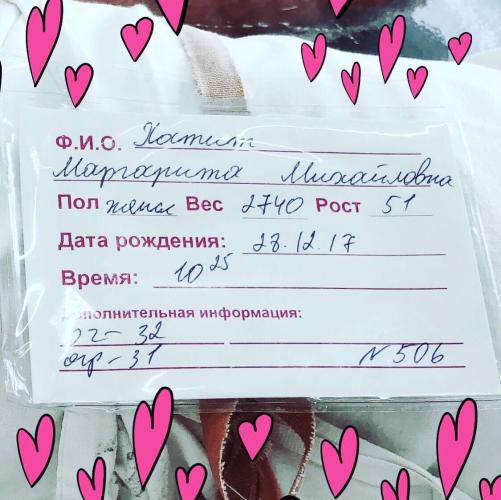 Ф.И.О. Хатит
Маргарита Михайловна
Пол женск Вес 2740 Рост 51
Дата рождения: 28.12.17
Время: 10 25
Дополнительная информация:
ог – 32
огр – 31 N 506